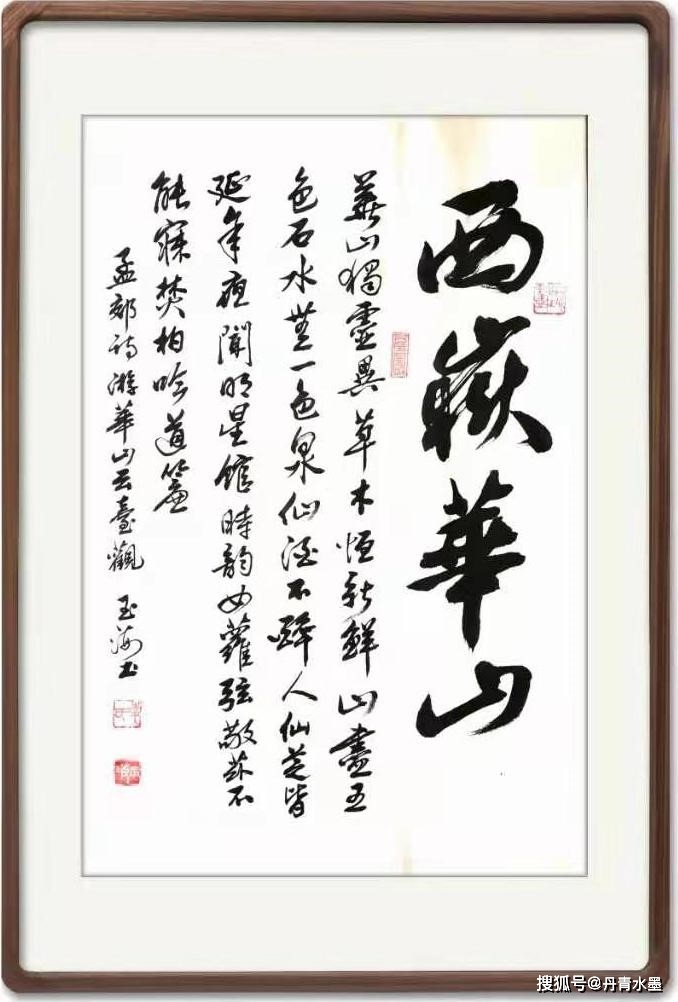 西嶽華山
華山獨靈異草木恒新鮮山盡五
色石水無一色泉仙酒不醉人仙芝皆
延年夜聞明星館時韵女蘿弦敬茲不
能寐焚柏吟道篇
孟郊詩游華山云臺觀 玉海书
搜狐号@丹青水墨